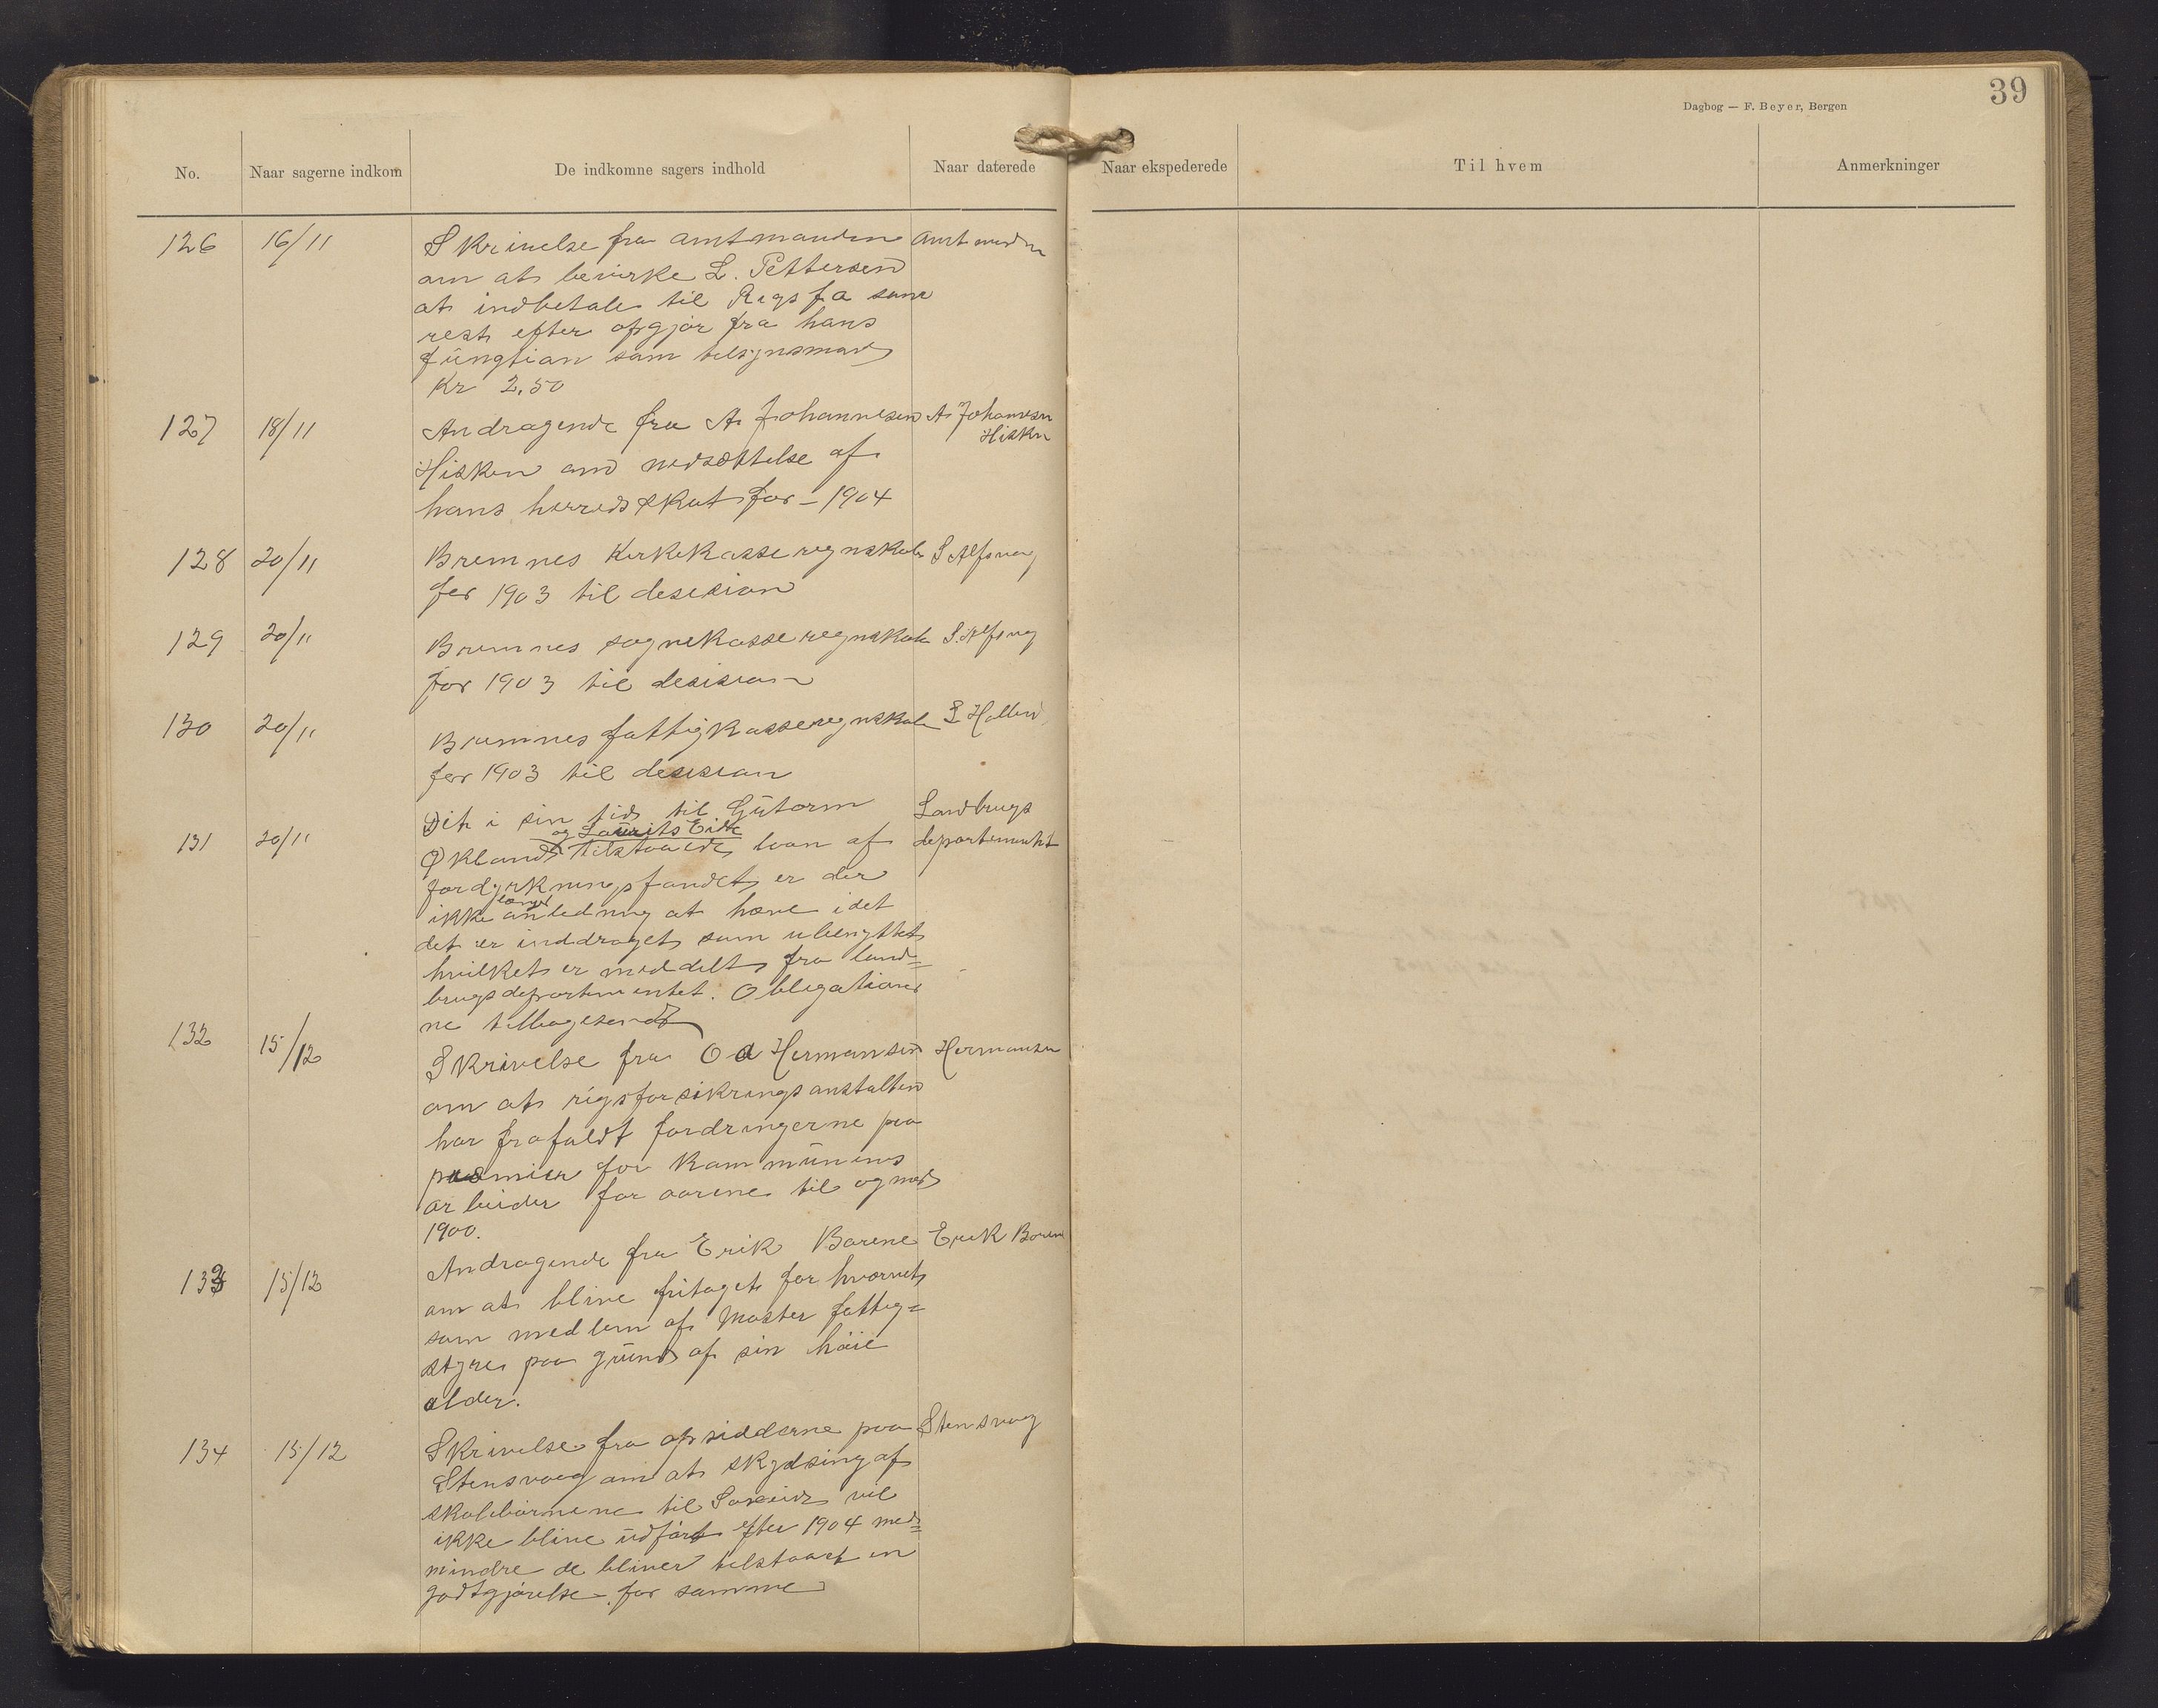 39
Dagbog — F. Beyer, Bergen
No. Naar sagerne indkom De indkomne sagers indhold Naar daterede Naar ekspederede Til hvem Anmerkninger
126 16/11 Skrivelse fra amtmanden Amtmanden
om at bevirke L. Pettersen
at indbetale til Rigsfa sum
rest efter opgjør fra hans
fungtion som tilsynsmand
Kr 2,50
127 18/11 Andragende fra A. Johannesen A. Johannesen
Hisken
Hisken om nedsættelse af
hans herredsskat for 1904
128 20/11 Bremnes Kirkekasse regnskab S Alfsvaag
for 1903 til desision
129 20/11 Bremnes sognekasse regnskab S. Alfsvaag
for 1903 til desision
130 20/11 Bremnes fattigkasseregnskab
for 1903 til desision
Det i sin tid til Gutorm Landbrugs
og Laurits Eide
131 20/11 Økland tilstaaede laan af departementet
fordyrkningsfondet er der
længer
ikke anledning at hæve idet
det er inddraget som ubenyttet
hvilket er meddelt fra land=
brugsdepartementet. Obligationer
ne tilbagesendt
132 15/12 Skrivelse fra O a Hermansen Hermansen
om at rigsforsikringsanstalten
har frafaldt fordringerne paa
præmier for kommunens
arbeider for aarene til og med
1900.
133 15/12 Andragende fra Erik Borene Erik Boren
om at blive fritaget for hvervet
som medlem af Moster fattig=
styre paa grund af sin høie
alder.
134 15/12 Skrivelse fra opsidderne paa Stensvaag
Stensvaag om at skydsing af
skolebørnene til Søreide vil
ikke blive udført efter 1904 med=
mindre de bliver tilstaaet en
godtgjørelse for samme